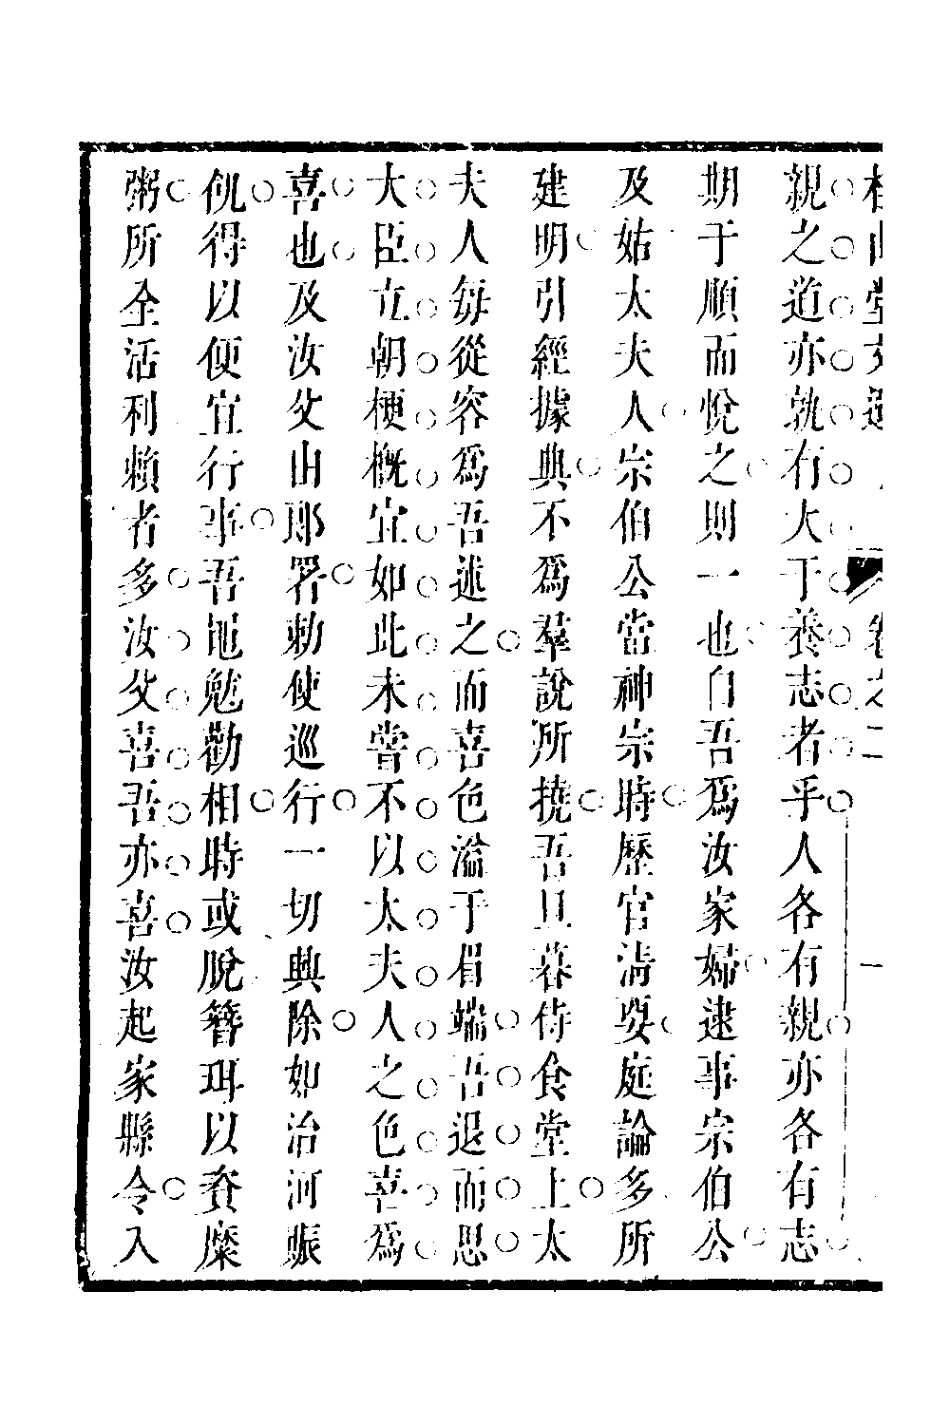 親之道亦孰有大于養志者乎人各有親亦各有志
期于順而悅之則一也自吾爲汝家婦逮事宗伯公
及姑太夫人宗伯公當神宗時歷官淸要庭論多所
建明引經據典不爲羣說所撓吾旦暮侍食堂上太
夫人每從容爲吾述之而喜色溢于眉端吾退而思
大臣立朝梗槪宜如此未嘗不以太夫人之色喜爲
喜也及汝父由郞署勅使巡行一切興除如治河賑
飢得以便宜行事吾黽勉勸相時或脫簪珥以資糜
粥所全活利賴者多汝父喜吾亦喜汝起家縣令入